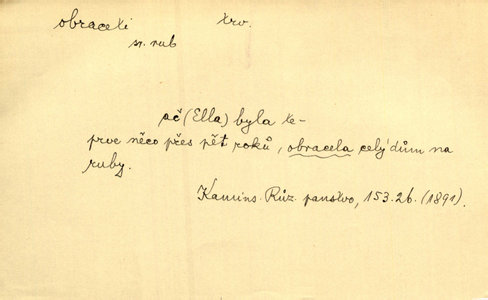 obraceti trv.
sr. rub
ač (Ella) byla te-
prve něco přes pět roků, obracela celý dům na
ruby.
Kamins. Růz. panstvo, 153.26. (1891).